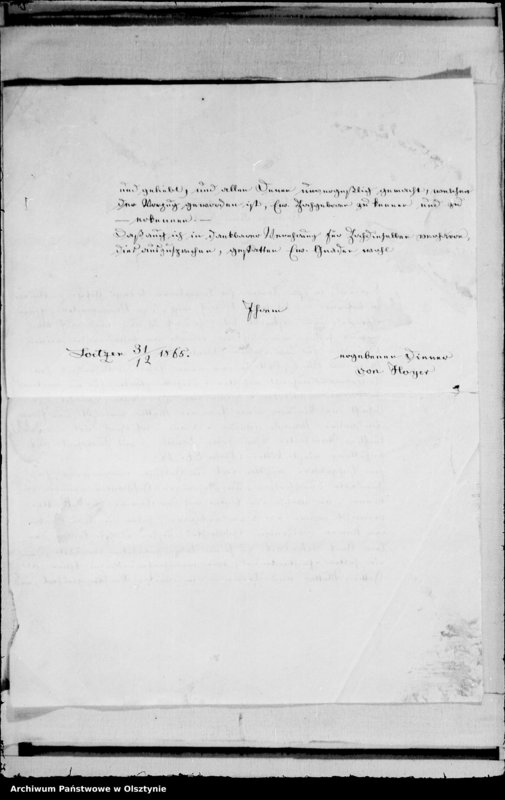 und geliebt, und allen Denen unvergeßlich gemacht, welchen
der Vorzug geworden ist, Ew. Hochgeboren zu kennen und zu
— erkennen. —
Daß auch ich in dankbarer Verehrung für Hochdieselben verharre,
dies auszusprechen, gestatten Ew. Gnaden wohl
Ihrem
31/12 1865.
ergebenen Diener
von Hoyer
Archiwum Państwowe w Olsztynie